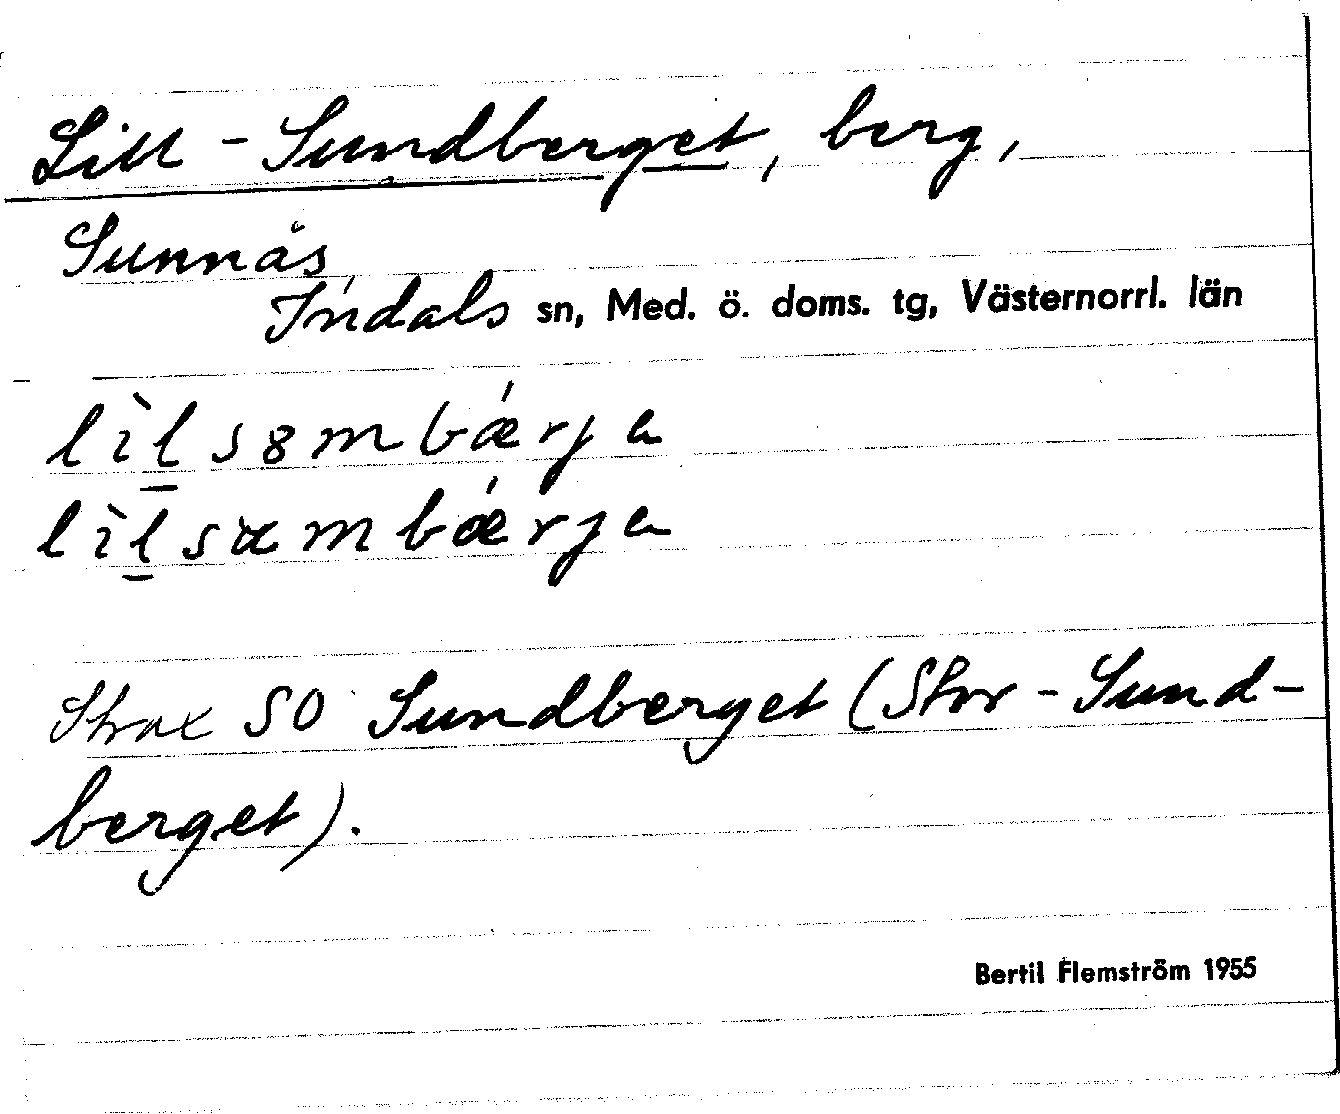 Lill-Sundberget, berg,
Sunnås
Indals sn, Med. ö. doms. tg, Västernorrl. län
lìl̲sømbǽrja
lìl̲sɯmbǽrja
Strax SO Sundberget (Stor-Sund-
berget).
Bertil Flemström 1955